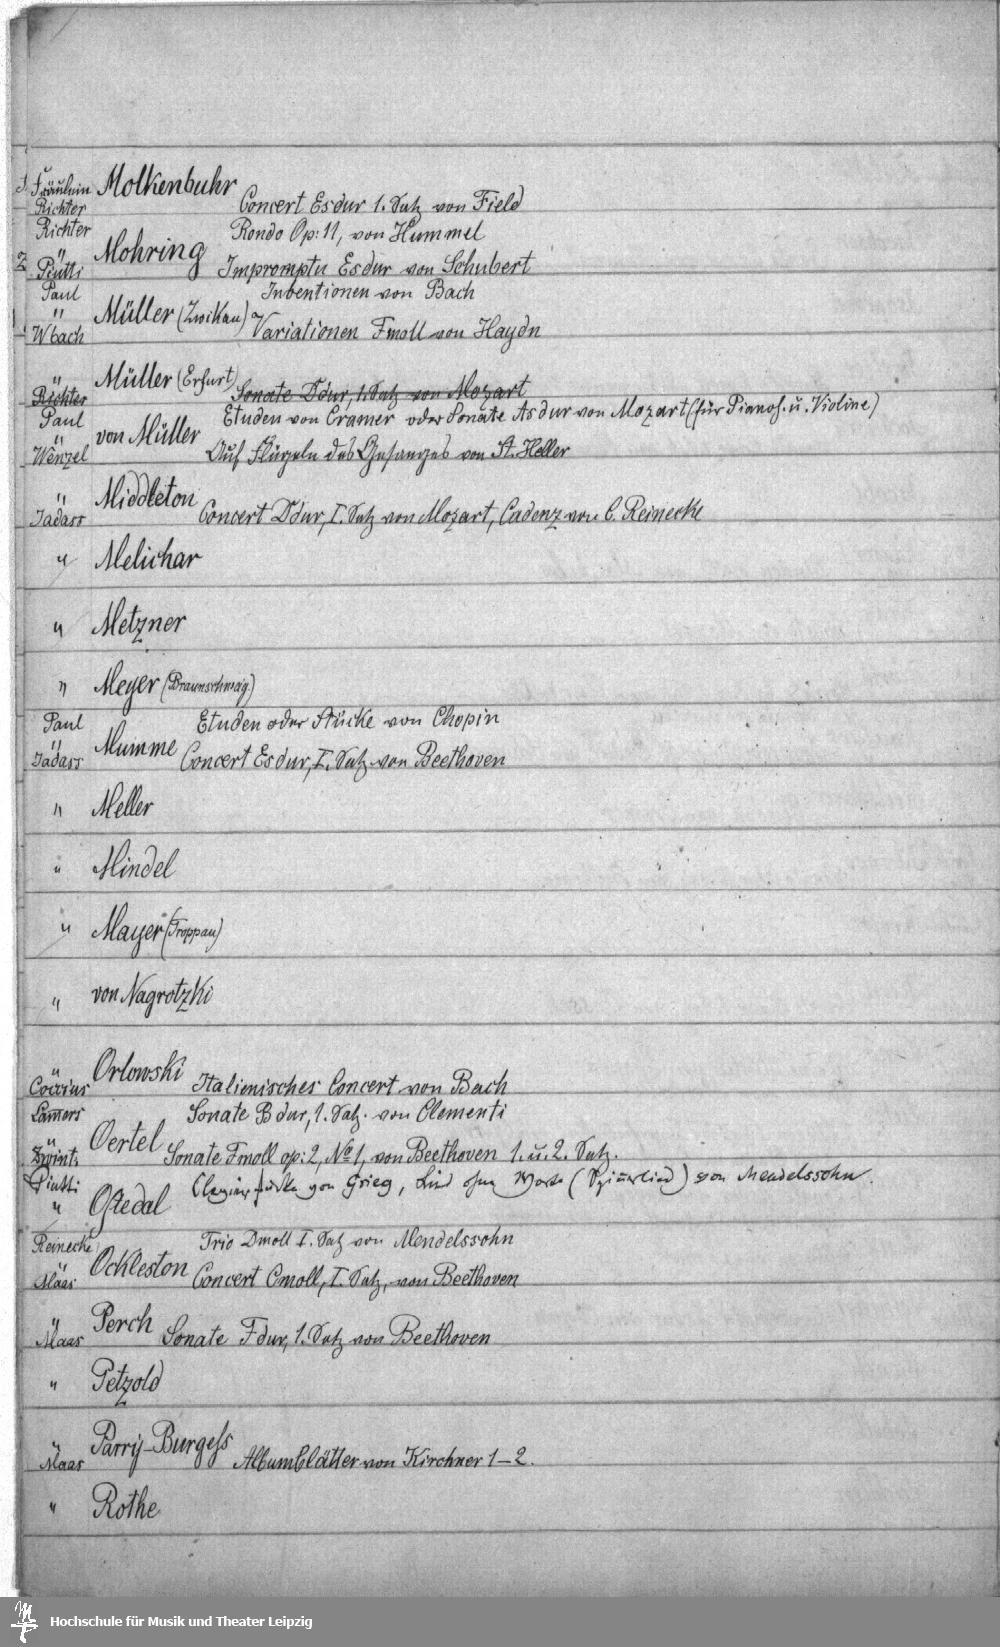 1. Fräulein Molkenbuhr
Richter Concert Esdur 1. Satz von Field
Richter Rondo Op: 11, von Hummel
2. " Mohring
Piutti Impromptu Esdur von Schubert
Paul Inventionen von Bach
" Müller (Zwikau)
Wbach Variationen Fmoll von Haydn
" Müller (Erfurt)
Richter Sonate Ddur, 1. Satz von Mozart
Paul Etuden von Cramer oder Sonate Asdur von Mozart (für Pianof. u. Violine)
" von Müller
Wenzel Auf Flügeln des Gesanges von St. Heller
" Middleton
Jadass Concert Ddur, I. Satz von Mozart, Cadenz von C. Reinecke
" Melichar
" Metzner
" Meyer (Braunschweig.)
Paul Etuden oder Stücke von Chopin
" Mumme
Jadass Concert Esdur, I. Satz von Beethoven
" Meller
" Mindel
" Mayer (Troppau)
" von Nagrotzki
" Orlowski
Coccius Italienisches Concert von Bach
Lamers Sonate Bdur, 1. Satz. von Clementi
" Oertel
Zwint. Sonate Fmoll op: 2, No 1, von Beethoven 1. u. 2. Satz.
Piutti Clavierstücke von Grieg, Lied ohne Worte (Spinnerlied) von Mendelssohn.
" Oftedal
Reinecke Trio Dmoll I. Satz von Mendelssohn
" Ockleston
Maas Concert Cmoll, I. Satz, von Beethoven
" Perch
Maas Sonate Fdur, 1. Satz von Beethoven
" Petzold
" Parry-Burgess
Maas Albumblätter von Kirchner 1-2.
" Rothe
Hochschule für Musik und Theater Leipzig